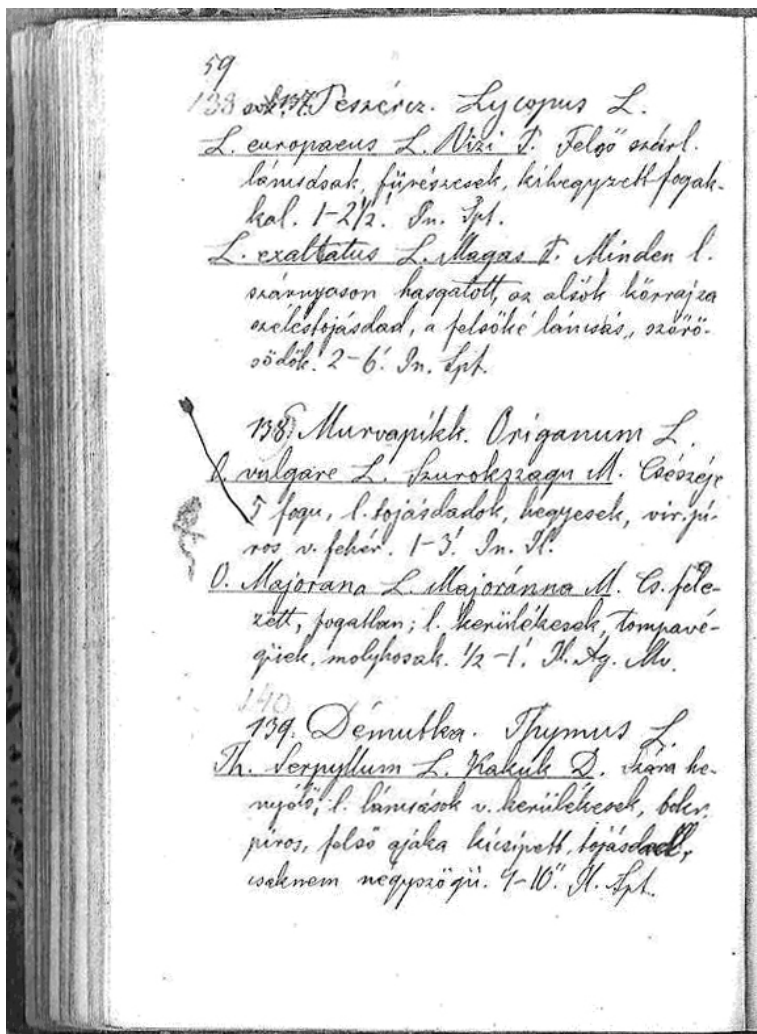 59
138 137. Peszércz. Lycopus L.
L. europaeus L. Vizi P. Felső szárl.
láncsásak, fürészesek, kihegyzett fogak-
kal. 1-2½'. Jn. Spt.
L. exaltatus L. Magas P. Minden l.
szárnyason hasgatott, az alsók körrajza
széles tojásdad, a felsőké láncsás, szőrö-
södők. 2-6'. Jn. Spt.
138. Murvapikk. Origanum L.
O. vulgare L. Szurokszagu M. Csészéje
5 fogu, l. tojásdadok, hegyesek, vir. pi-
ros v. fehér. 1-3'. Jn. Jl.
O. Majorana L. Majoránna M. Cs. fele-
zett, fogatlan; l. kerülékesek, tompavé-
güek, molyhosak. ½-1'. Jl. Ag. Mv.
140
139. Démutka. Thymus L.
Th. Serpyllum L. Kakuk D. Szára he-
nyölő, l. láncsások v. kerülékesek, bokr.
piros, felső ajaka kicsipett, tojásdad,
csaknem négyszögü. 4-10". Jl. Spt.